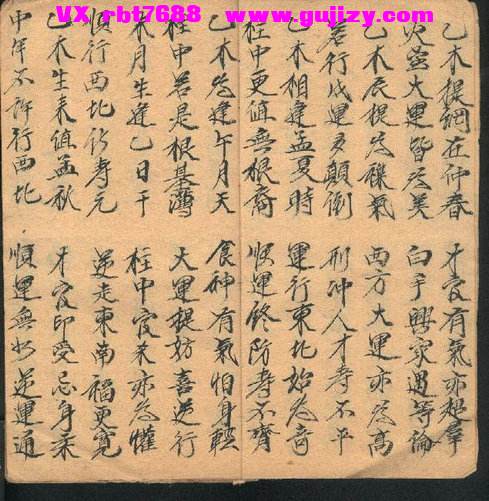 VX rbt7688 www.gujizy.com
乙木提綱在仲春 才官有氣亦超群
火金大運皆為美 白手興家過等倫
乙木辰提為襍氣 西方大運亦為高
若行戌運多顛倒 刑冲人才寿不平
乙木相逢孟夏時 運行東北始為奇
柱中更值無根裔 順運終防寿不齊
乙木為逢午月天 食神有氣怕身輕
柱中若是根基薄 大運提防喜逆行
未月生逢乙日干 柱中官杀亦為懽
順行西北行寿元 逆走東南福更寬
乙木生来值孟秋 才官印受忌身柔
中年不許行西北 順運無如逆運通